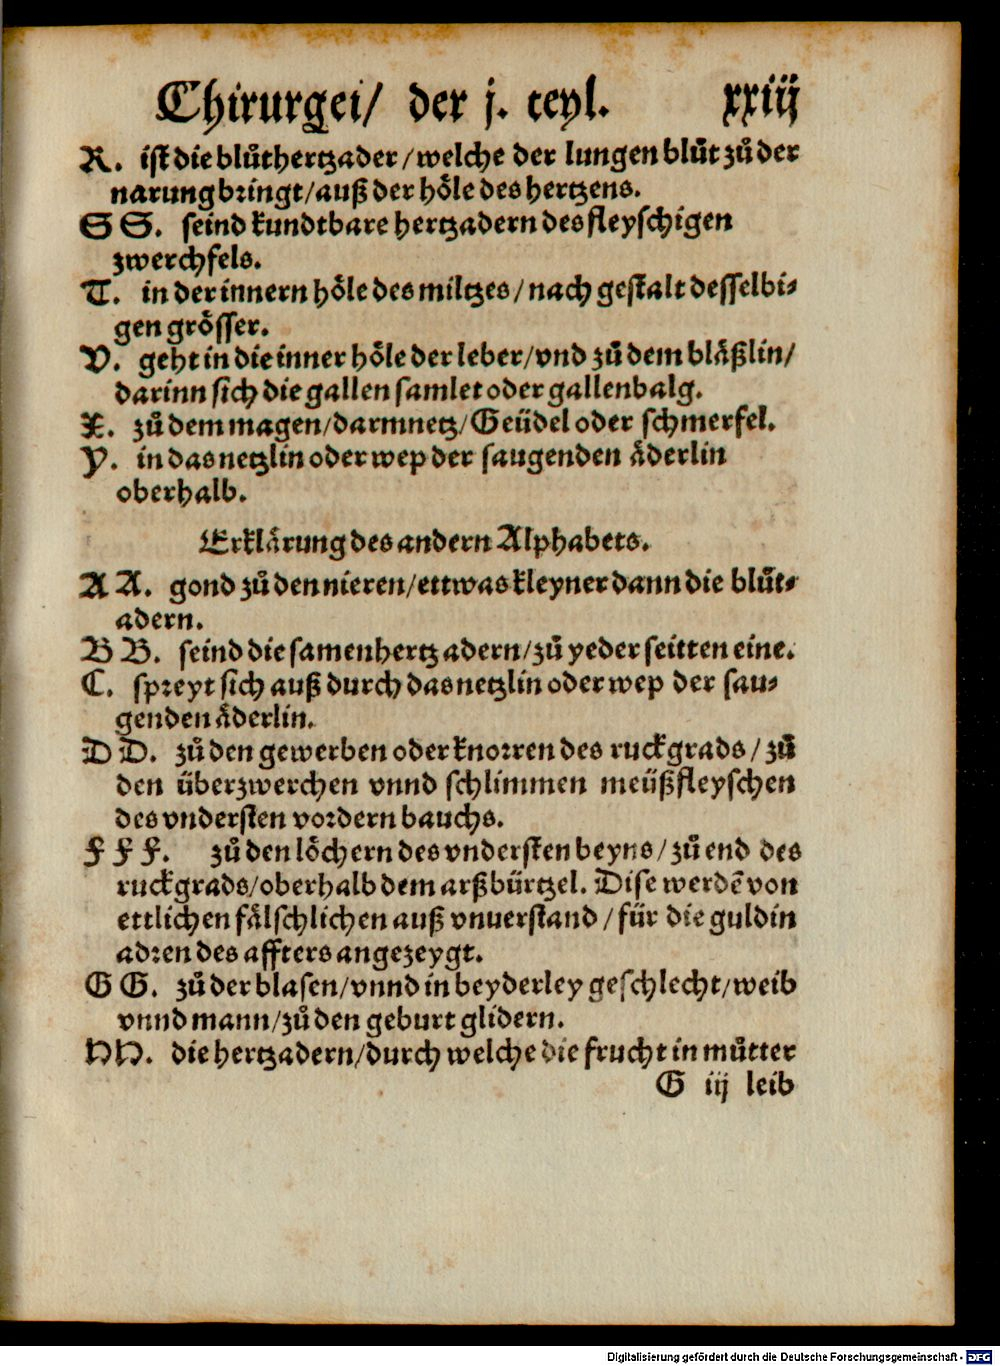 Chirurgei/ der j. teyl. xxiij
R. ist die blůthertzader/welche der lungen blůt zů der
narung bringt/auß der höle des hertzens.
S S. seind kundtbare hertzadern des fleyschigen
zwerchfels.
T. in der innern höle des miltzes/nach gestalt desselbi-
gen grösser.
V. geht in die inner höle der leber/vnd zů dem bläßlin/
darinn sich die gallen samlet oder gallenbalg.
X. zů dem magen/darmnetz/Geüdel oder schmerfel.
Y. in das netzlin oder wep der saugenden äderlin
oberhalb.
Erklärung des andern Alphabets.
A A. gond zů den nieren/ettwas kleyner dann die blůt-
adern.
B B. seind die samenhertzadern/zů yeder seitten eine.
C. spreyt sich auß durch das netzlin oder wep der sau-
genden äderlin.
D D. zů den gewerben oder knorren des ruckgrads/zů
den überzwerchen vnnd schlimmen meüßfleyschen
des vndersten vordern bauchs.
F F F. zů den löchern des vndersten beyns/zů end des
ruckgrads/oberhalb dem arßbürtzel. Dise werdē von
ettlichen fälschlichen auß vnuerstand/für die guldin
adren des affters angezeygt.
G G. zů der blasen/vnnd in beyderley geschlecht/weib
vnnd mann/zů den geburt glidern.
HH. die hertzadern/durch welche die frucht in můtter
G iij leib
Digitalisierung gefördert durch die Deutsche Forschungsgemeinschaft - DFG